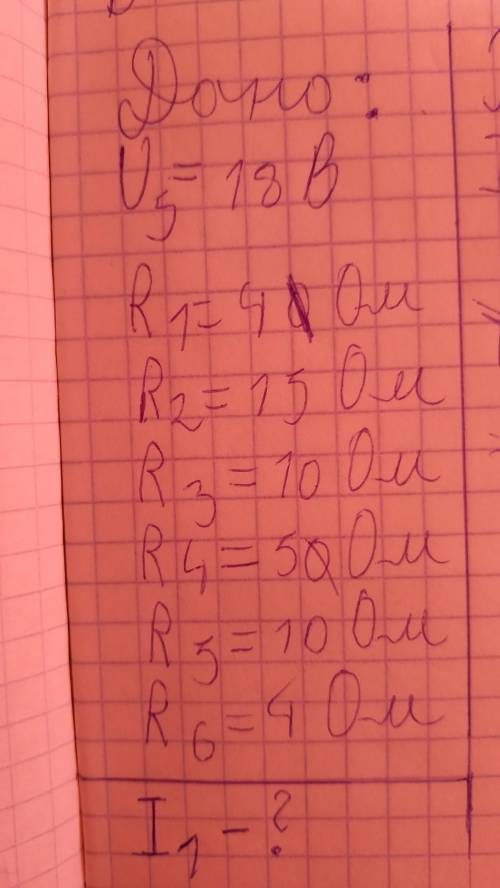 Дано:
U5 = 18 В
R1 = 4 Ом
R2 = 15 Ом
R3 = 10 Ом
R4 = 5 Ом
R5 = 10 Ом
R6 = 4 Ом
I1 - ?